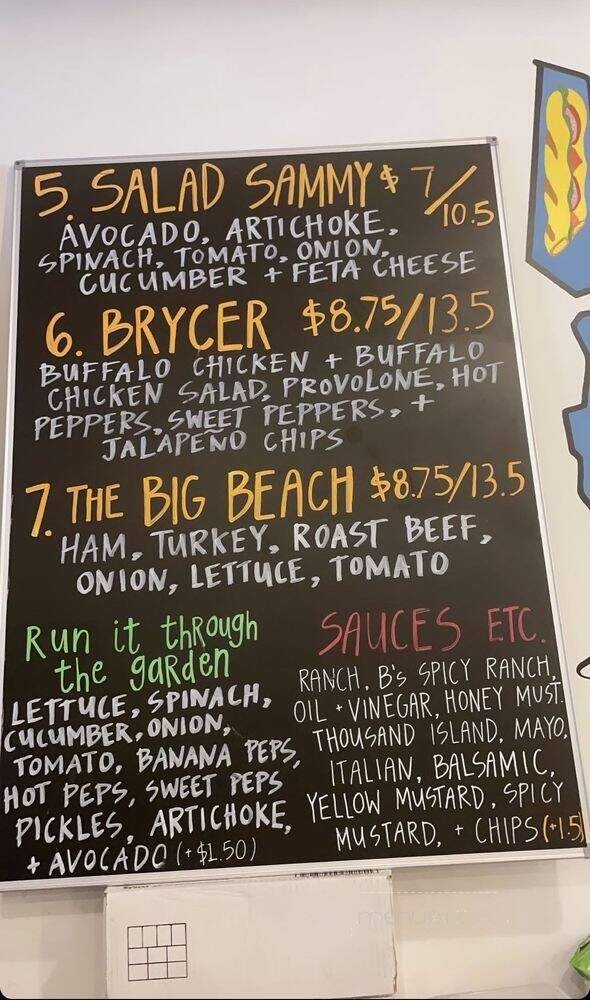 5. SALAD SAMMY $ 7/10.5
AVOCADO, ARTICHOKE,
SPINACH, TOMATO, ONION,
CUCUMBER + FETA CHEESE
6. BRYCER $8.75/13.5
BUFFALO CHICKEN + BUFFALO
CHICKEN SALAD, PROVOLONE, HOT
PEPPERS, SWEET PEPPERS, +
JALAPEÑO CHIPS
7. THE BIG BEACH $8.75/13.5
HAM, TURKEY, ROAST BEEF,
ONION, LETTUCE, TOMATO
Run it through
the garden
LETTUCE, SPINACH,
CUCUMBER, ONION,
TOMATO, BANANA PEPS,
HOT PEPS, SWEET PEPS
PICKLES, ARTICHOKE,
+ AVOCADO (+$1.50)
SAUCES ETC.
RANCH, B's SPICY RANCH,
OIL + VINEGAR, HONEY MUST.
THOUSAND ISLAND, MAYO,
ITALIAN, BALSAMIC,
YELLOW MUSTARD, SPICY
MUSTARD, + CHIPS (+1.5)